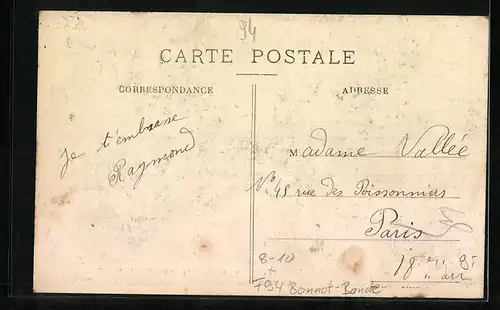 94
CARTE POSTALE
CORRESPONDANCE
ADRESSE
Je t'embrasse
Raymond
Madame Vallée
No 45 rue des Poissonniers
Paris
18
arr
8-10
+
F94 Bonnot-Bande